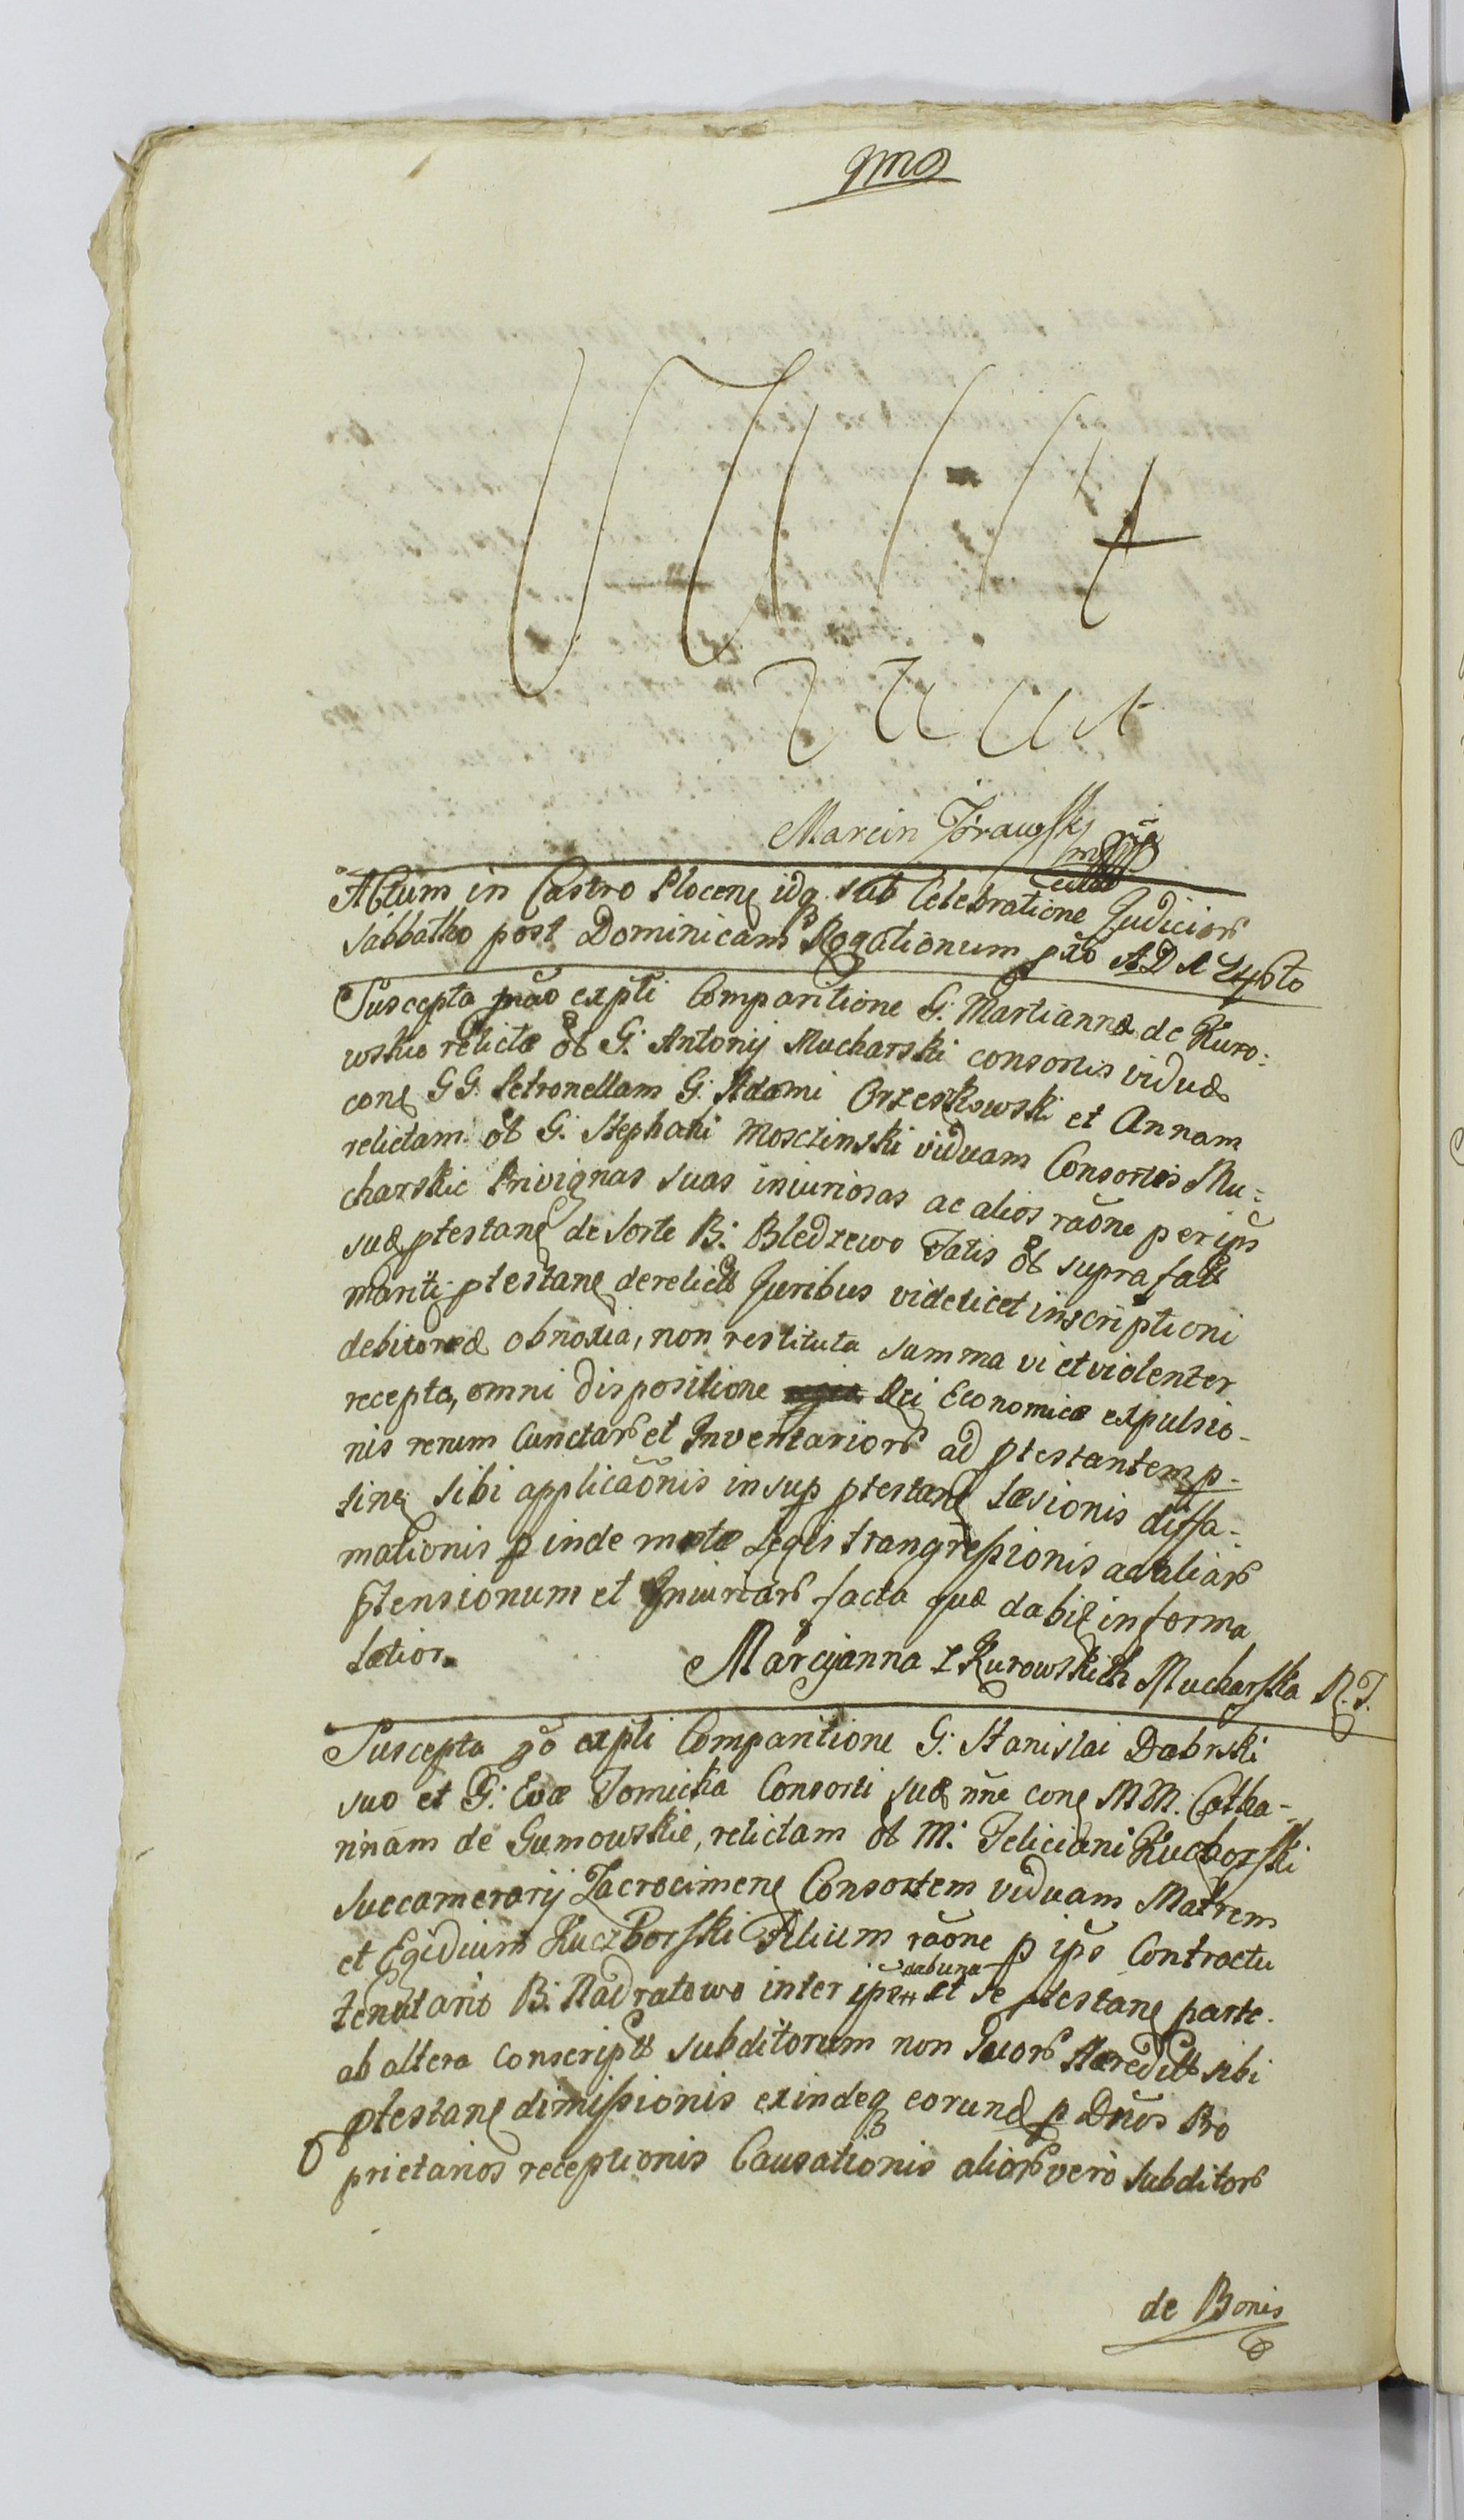 Vacat
Marcin Żórawski
mpp
Actum in Castro Plocenʒ idq sub Celebratione Judiciorꝫ
Sabbatho post Dominicam Rogationum pxo A D
Suscepta expti Comparitione G: Martiannæ de Kuro:
wskie relictæ ol G: Antonij Mucharski consortis viduæ
conʒ GG. Petronellam G: Adami Orzeszkowski et Annam
relictam ol G: Stephani Moszczinski viduam Consortes Mu:
charskie Privignas suas injuriosas ac alios raõne per ips
suæ ptestanʒ de sorte B: Bledzewo Fatis ol supra fati
mariti ptestanʒ derelict Juribus videlicet inscriptioni
debitoreæ obnoxia, non restituta summa vi et violenter
recepta, omni dispositione Rei Economicæ expulsio-
nis rerum Cunctarꝫ et Inventariorꝫ ad ptestantem p-
tinenʒ sibi applicaõnis insup ptestanʒ Læsionis diffa-
mationis pinde motæ Legis trangressionis ac aliarꝫ
ptensionum et Injuriarꝫ facta quæ dabit in forma
Latiori
Marcyanna z Kurowskich Mucharska
Suscepta expti Comparitione G: Stanislai Dabrski
suo et G: Evæ Tomicka Consorti suæ nñe conʒ MM. Catha-
rinam de Gumowskie, relictam ol M: Feliciani Kuczborski
Succamerarij Zacrocimenʒ Consortem viduam Matrem
et Egidium Kuczborski Filium raõne p ips Contractu
tenutario B: Nadratowo inter ipsos ab una et se ptestanʒ parte
ab altera Conscript subditorum non suorꝫ Hæredit sibi
ptestanʒ dimissionis exindeq eorund p Dños Pro
prietarios receptionis Causationis aliorꝫ vero Subditorꝫ
de Bonis